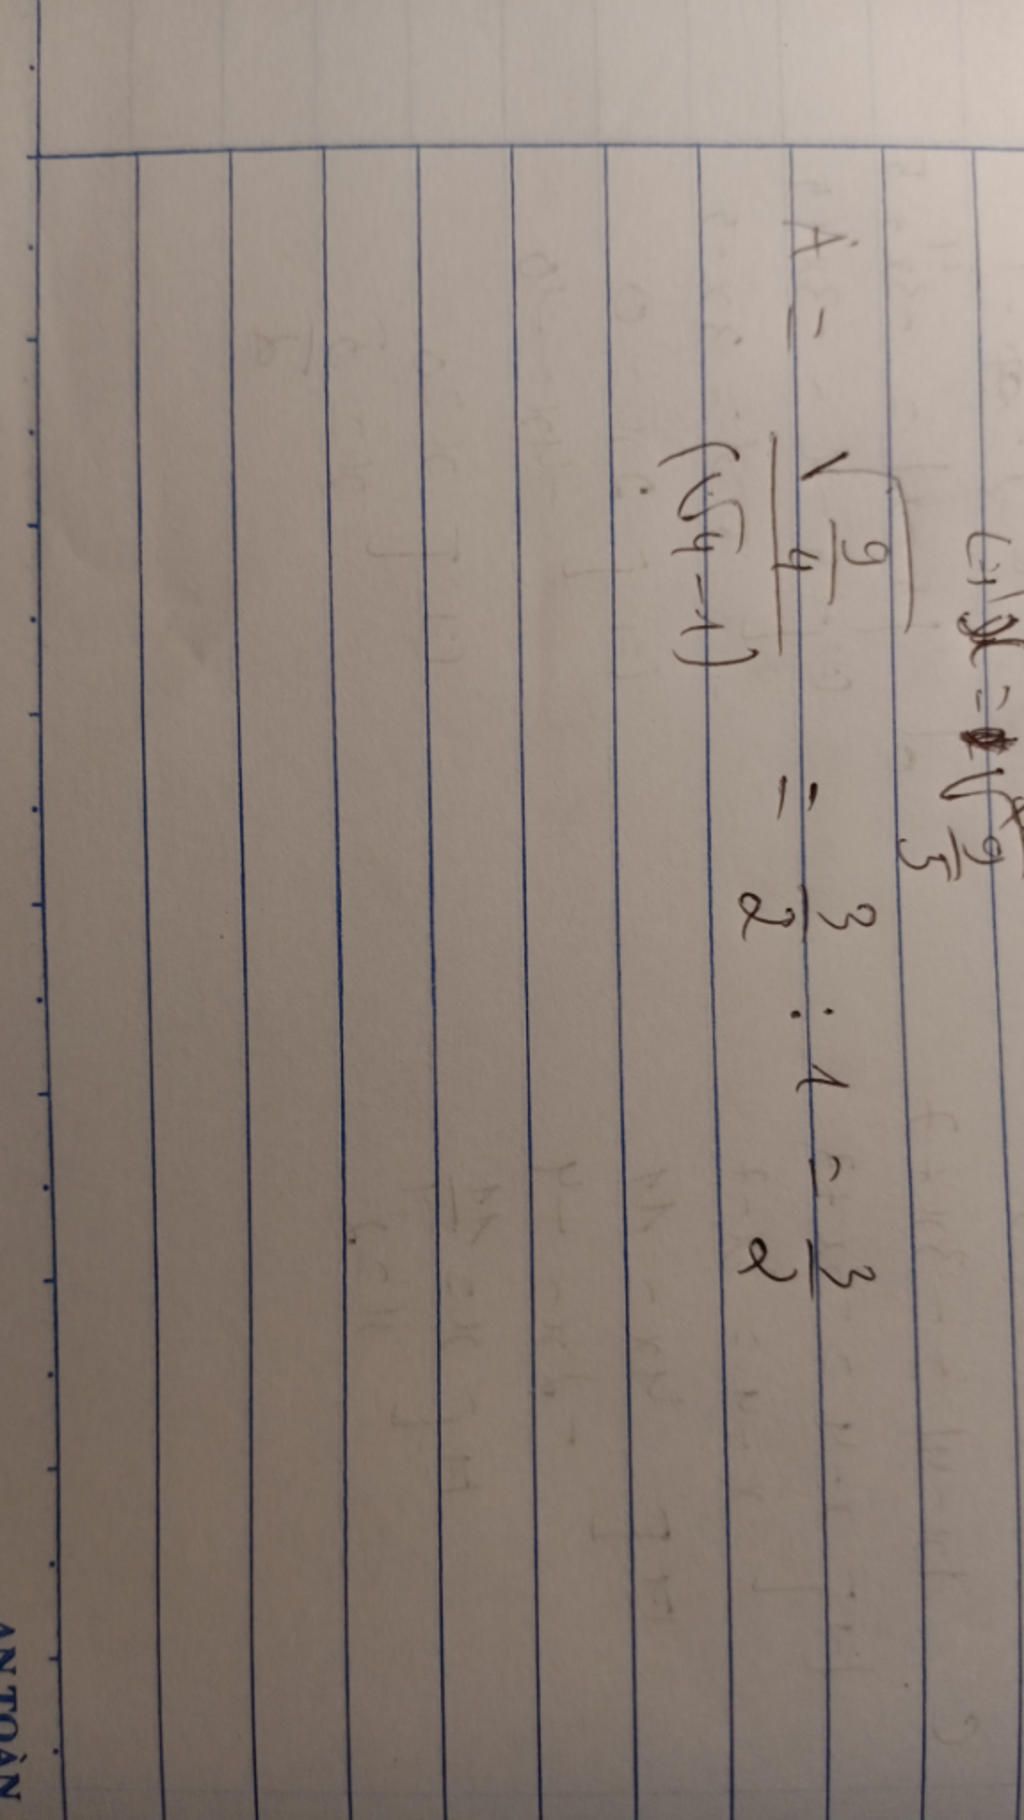 x = √9/5
A = √(9/4)/(√4-1) = 3/2 : 1 = 3/2
AN TOÀN